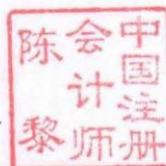 中国注册
会计师
陈黎